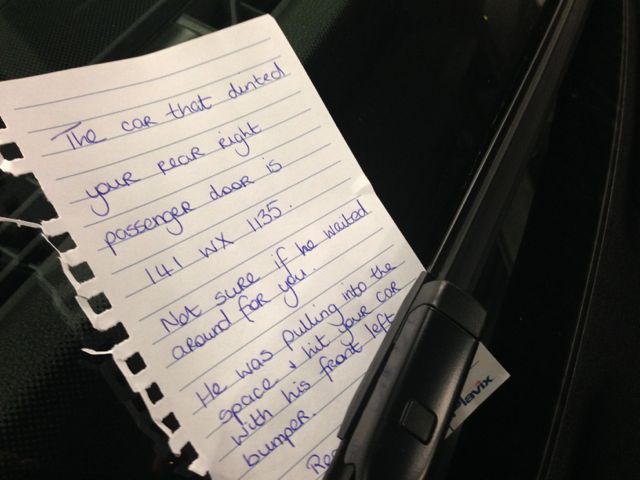 The car that dinted
your rear right
passenger door is
141 WX 1135.
Not sure if he waited
around for you.
He was pulling into the
space & hit your car
with his front left
bumper.
Plavix